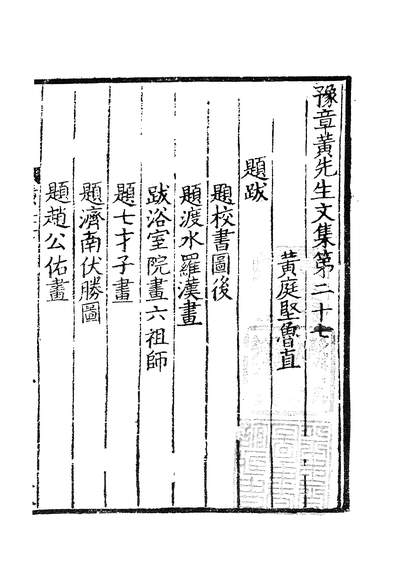 豫章黃先生文集第二十七
黃庭堅魯直
題跋
題校書圖後
題渡水羅漢畫
跋浴室院畫六祖師
題七才子畫
題濟南伏勝圖
題趙公佑畫